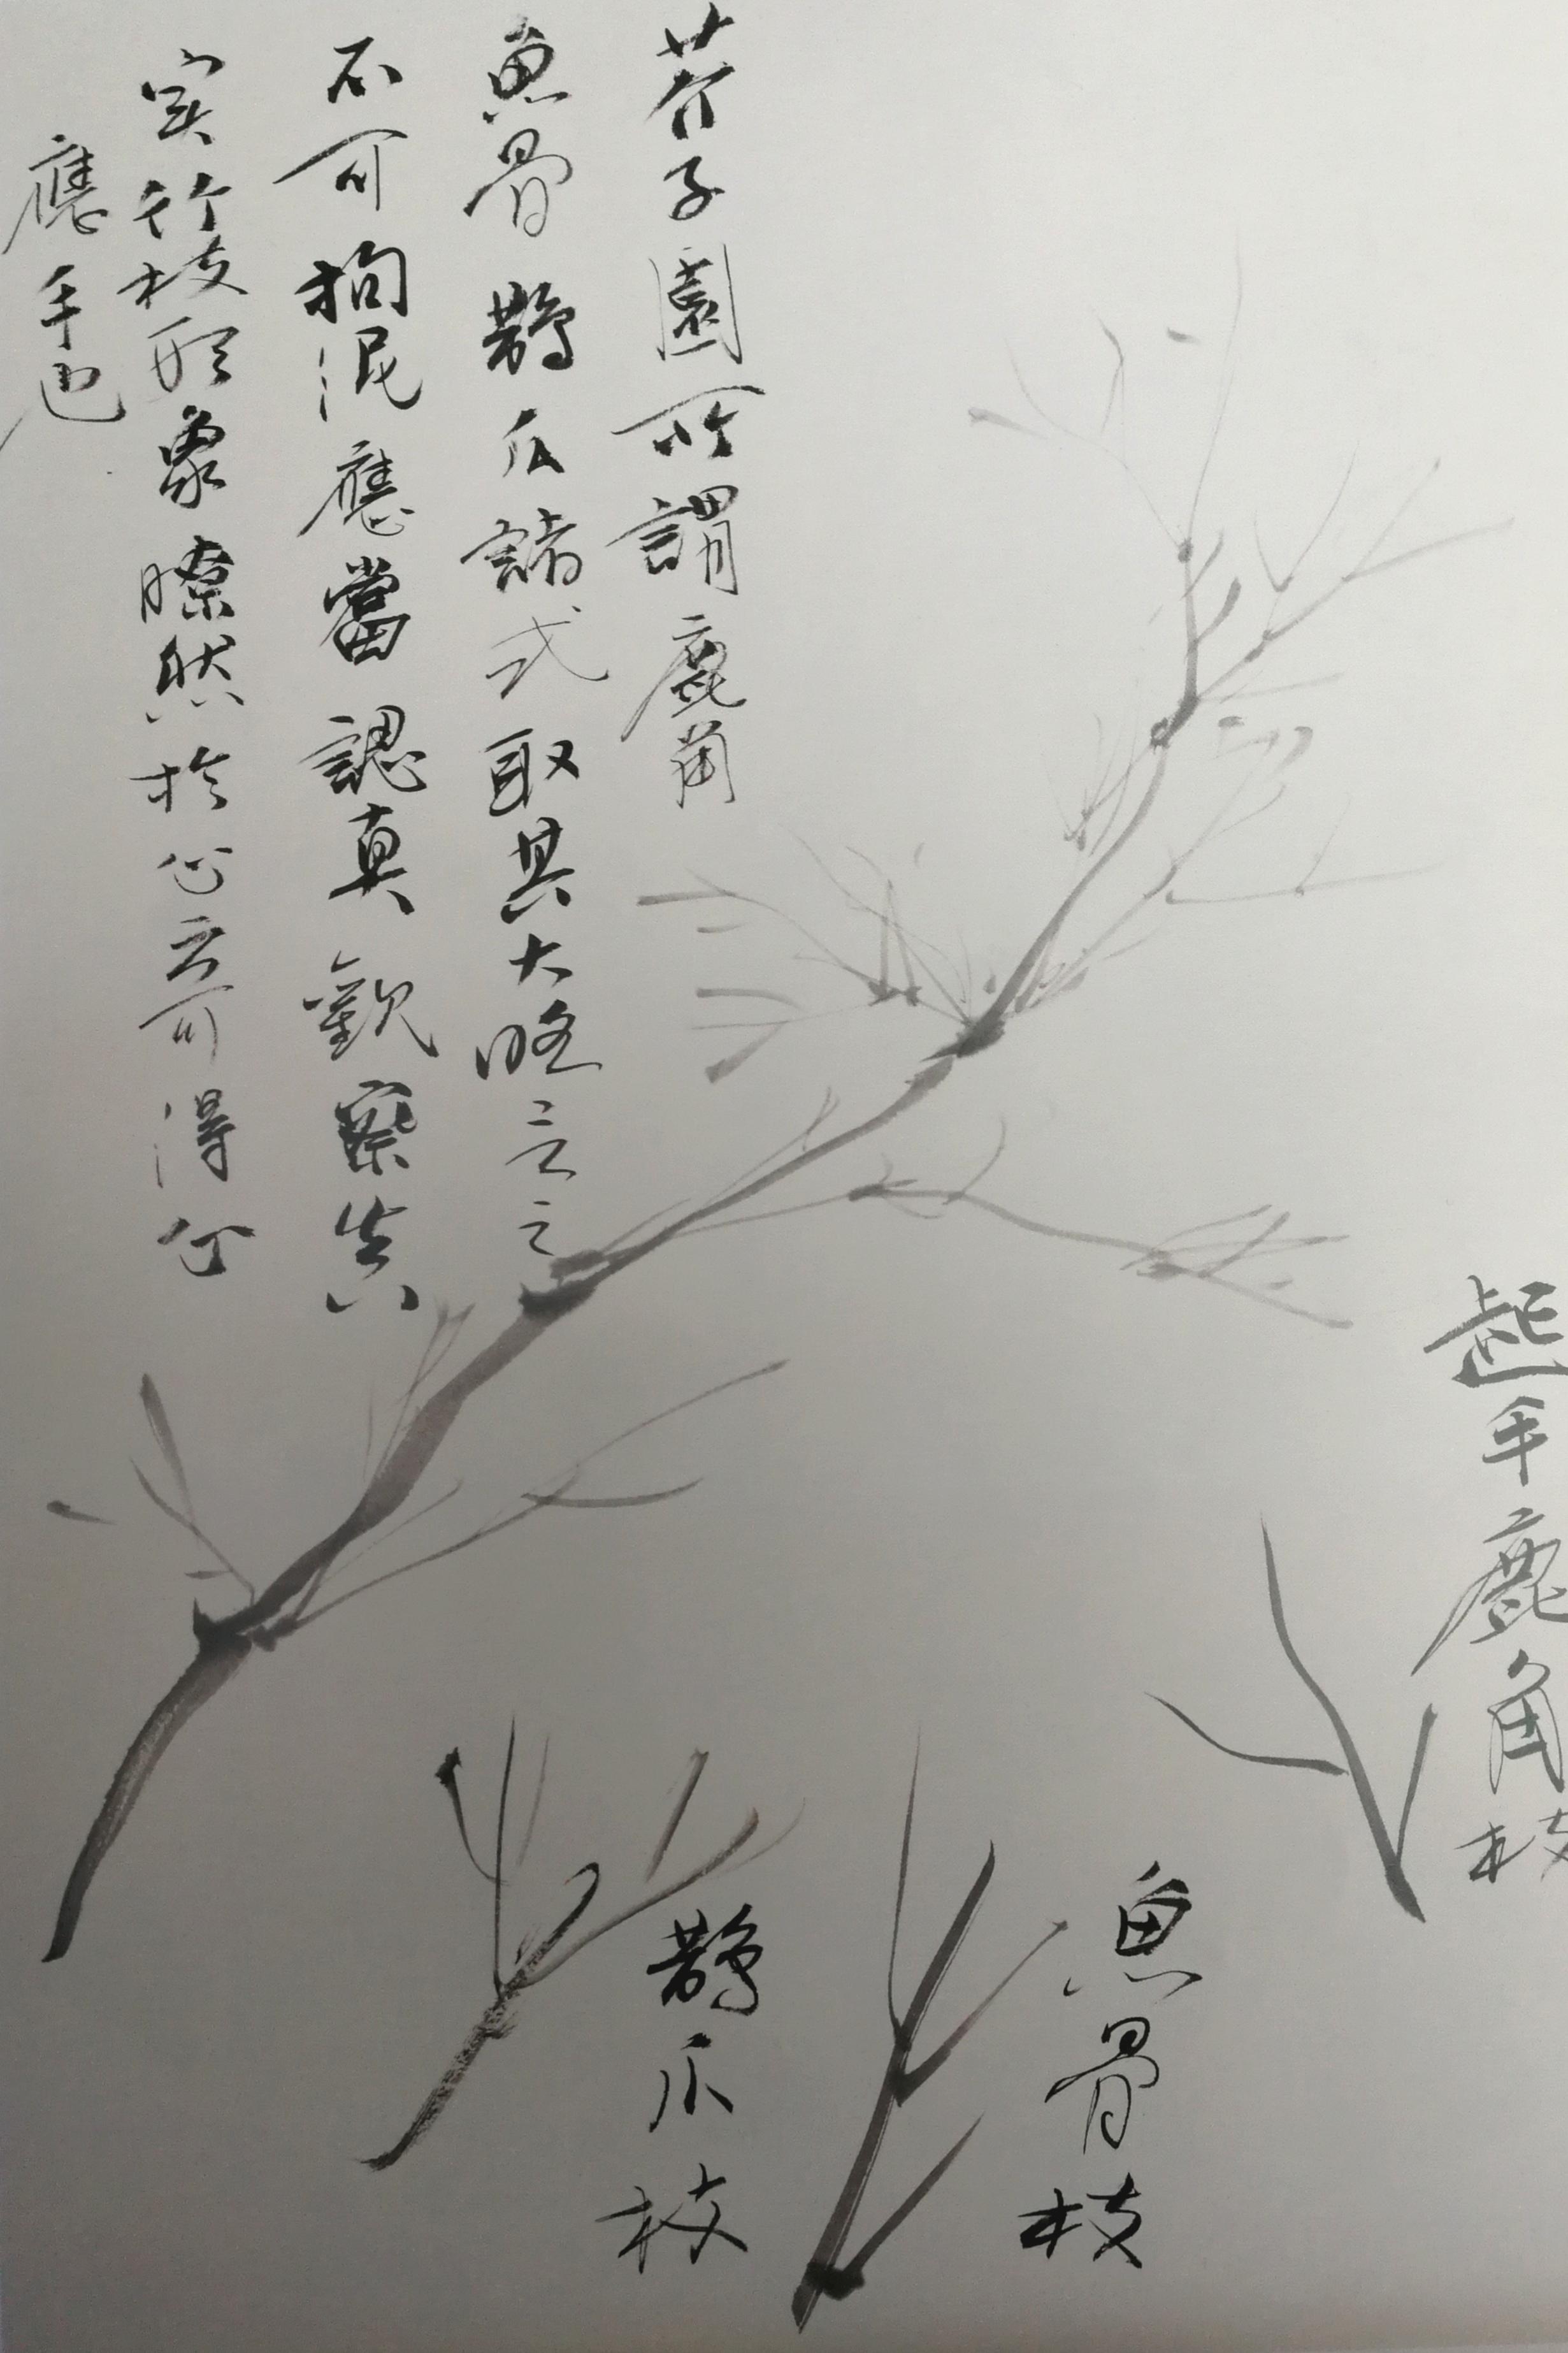 芥子園所謂鹿角
魚骨鵲爪諸式取其大略言之
不可拘泥應當認真觀察其
实竹枝形象瞭然於心方可得心
應手也
起手鹿角枝
魚骨枝
鵲爪枝